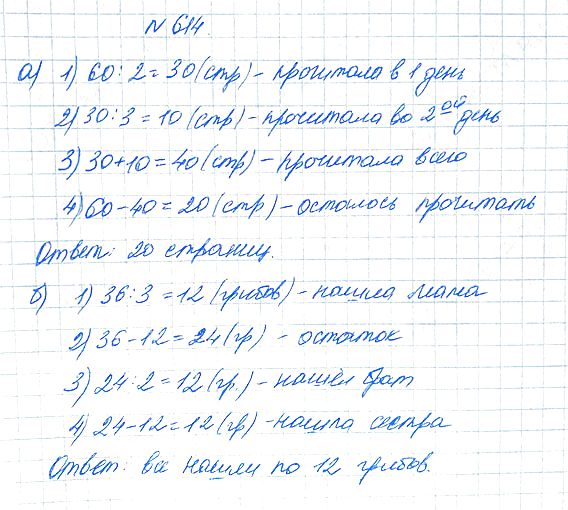 N 614
а) 1) 60 : 2 = 30 (стр) - прочитала в 1 день
2) 30 : 3 = 10 (стр) - прочитала во 2ой день
3) 30 + 10 = 40 (стр) - прочитала всего
4) 60 - 40 = 20 (стр) - осталось прочитать
Ответ: 20 страниц.
б) 1) 36 : 3 = 12 (грибов) - нашла мама
2) 36 - 12 = 24 (гр) - остаток
3) 24 : 2 = 12 (гр.) - нашёл брат
4) 24 - 12 = 12 (гр) - нашла сестра
Ответ: все нашли по 12 грибов.